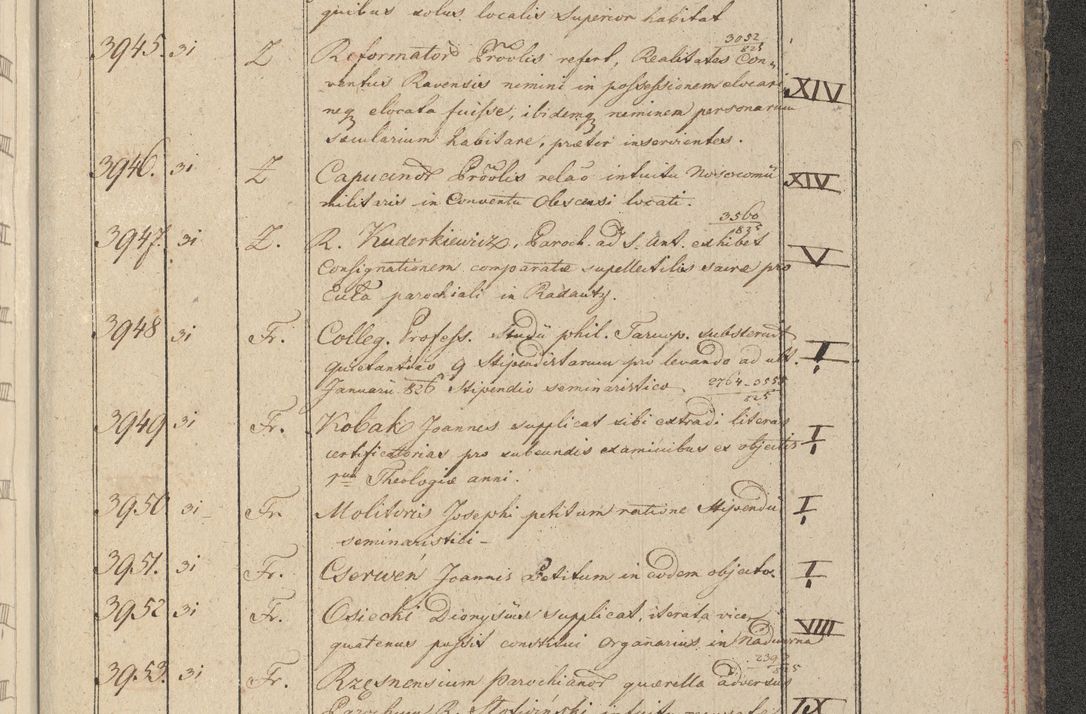 quibus solus localis Superior habitat
3052
825
3945. 31 Z Reformator Provlis refert, Realitates Con„
ventus Ravensis nemini in possessionem elocari XIV
neq elocata fuisse, ibidemq neminem personarum
saecularium habitare, praeter inservientes.
3946. 31 Z Capucinor Provlis relao intuitu Nosocomii XIV
militaris in Conventu Olescensi locati.
3560
825
3947. 31 Z. R. Kuderkiewicz, Paroch. ad S. Ant. exhibet V
Consignationem comparatae supellectilis sacrae pro
Eccla parochiali in Radautz.
3948 31 Fr. Colleg. Profess. Studii phil. Tarnop. substernit
quietantias 9 Stipendistarum pro levando ad ult. I
Januarii 826 Stipendio seminaristico 2764-3555
825
3949 31 Fr. Kobak Joannes supplicat sibi extradi literas
certificatorias pro subeundis examinibus ex objectis I
rum Theologiae anni.
3950 31 Fr. Molitoris Josephi petitum ratione Stipendii I
seminaristici
3951. 31 Fr. Cserwen Joannis Petitum in eodem objecto. I
3952 31 Fr. Osiecki Dionysius supplicat, iterata vice, VIIII
quatenus possit constitui Organarius in Nadworna
239
825
3953. 31 Fr. Rzesnensium parochianor quaerella adversus
Parochum R. intuitu IX